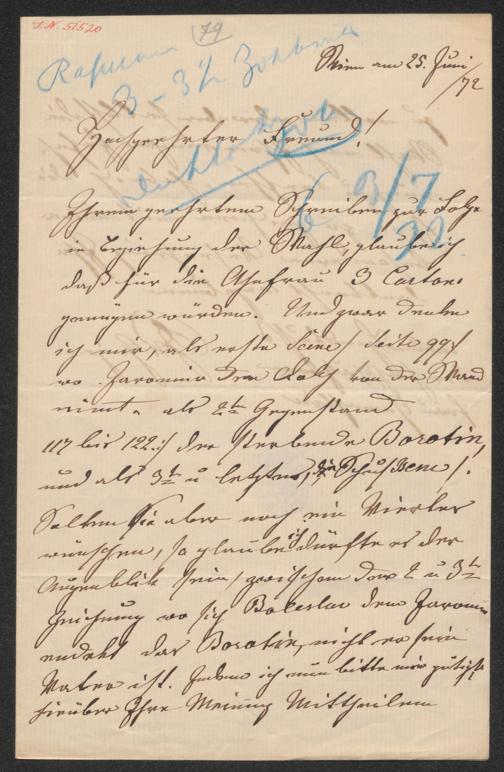 I.N. 51520
79
Wien am 25. Juni
/72
Hochgeehrter Freund!
3/7
72
Ihrem geehrtem Schreiben zur Folge
in Beziehung der Wahl, glaube ich
daß für die Ahnfrau 3 Cartons
genügen würden. Und zwar denke
ich mir, als erste Scene / Seite 99 /
wo Jaromir den Dolch von der Wand
nimt. als 2te Gegenstand
117 bis 122 :/ der sterbende Borotin,
und als 3te u letzte, die Schluß Scene /.
Sollten Sie aber noch ein Viertes
wünschen, so glaube ich dürfte es der
Augenblik sein / zwischen der 2 u 3te
Zeichnung wo sich Boleslav dem Jaromir
endekt das Borotin, nicht er sein
Vater ist. Indem ich nun bitte mir gütigst
hierüber Ihre Meinung Mittheilen